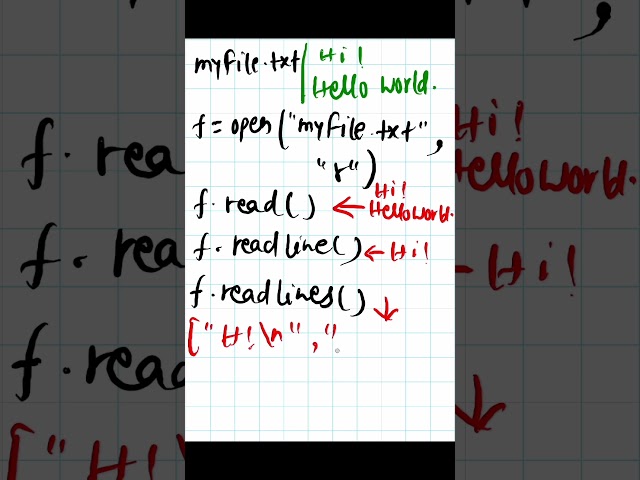 myfile.txt | Hi!
Hello World.
f = open("myfile.txt",
"r")
f.read() ← Hi!
Hello World.
f.readline() ← Hi!
f.readlines() ↓
["Hi!\n","
f.read
Hi!
Hello World.
f.rea
Hi!
f.read
["Hi!